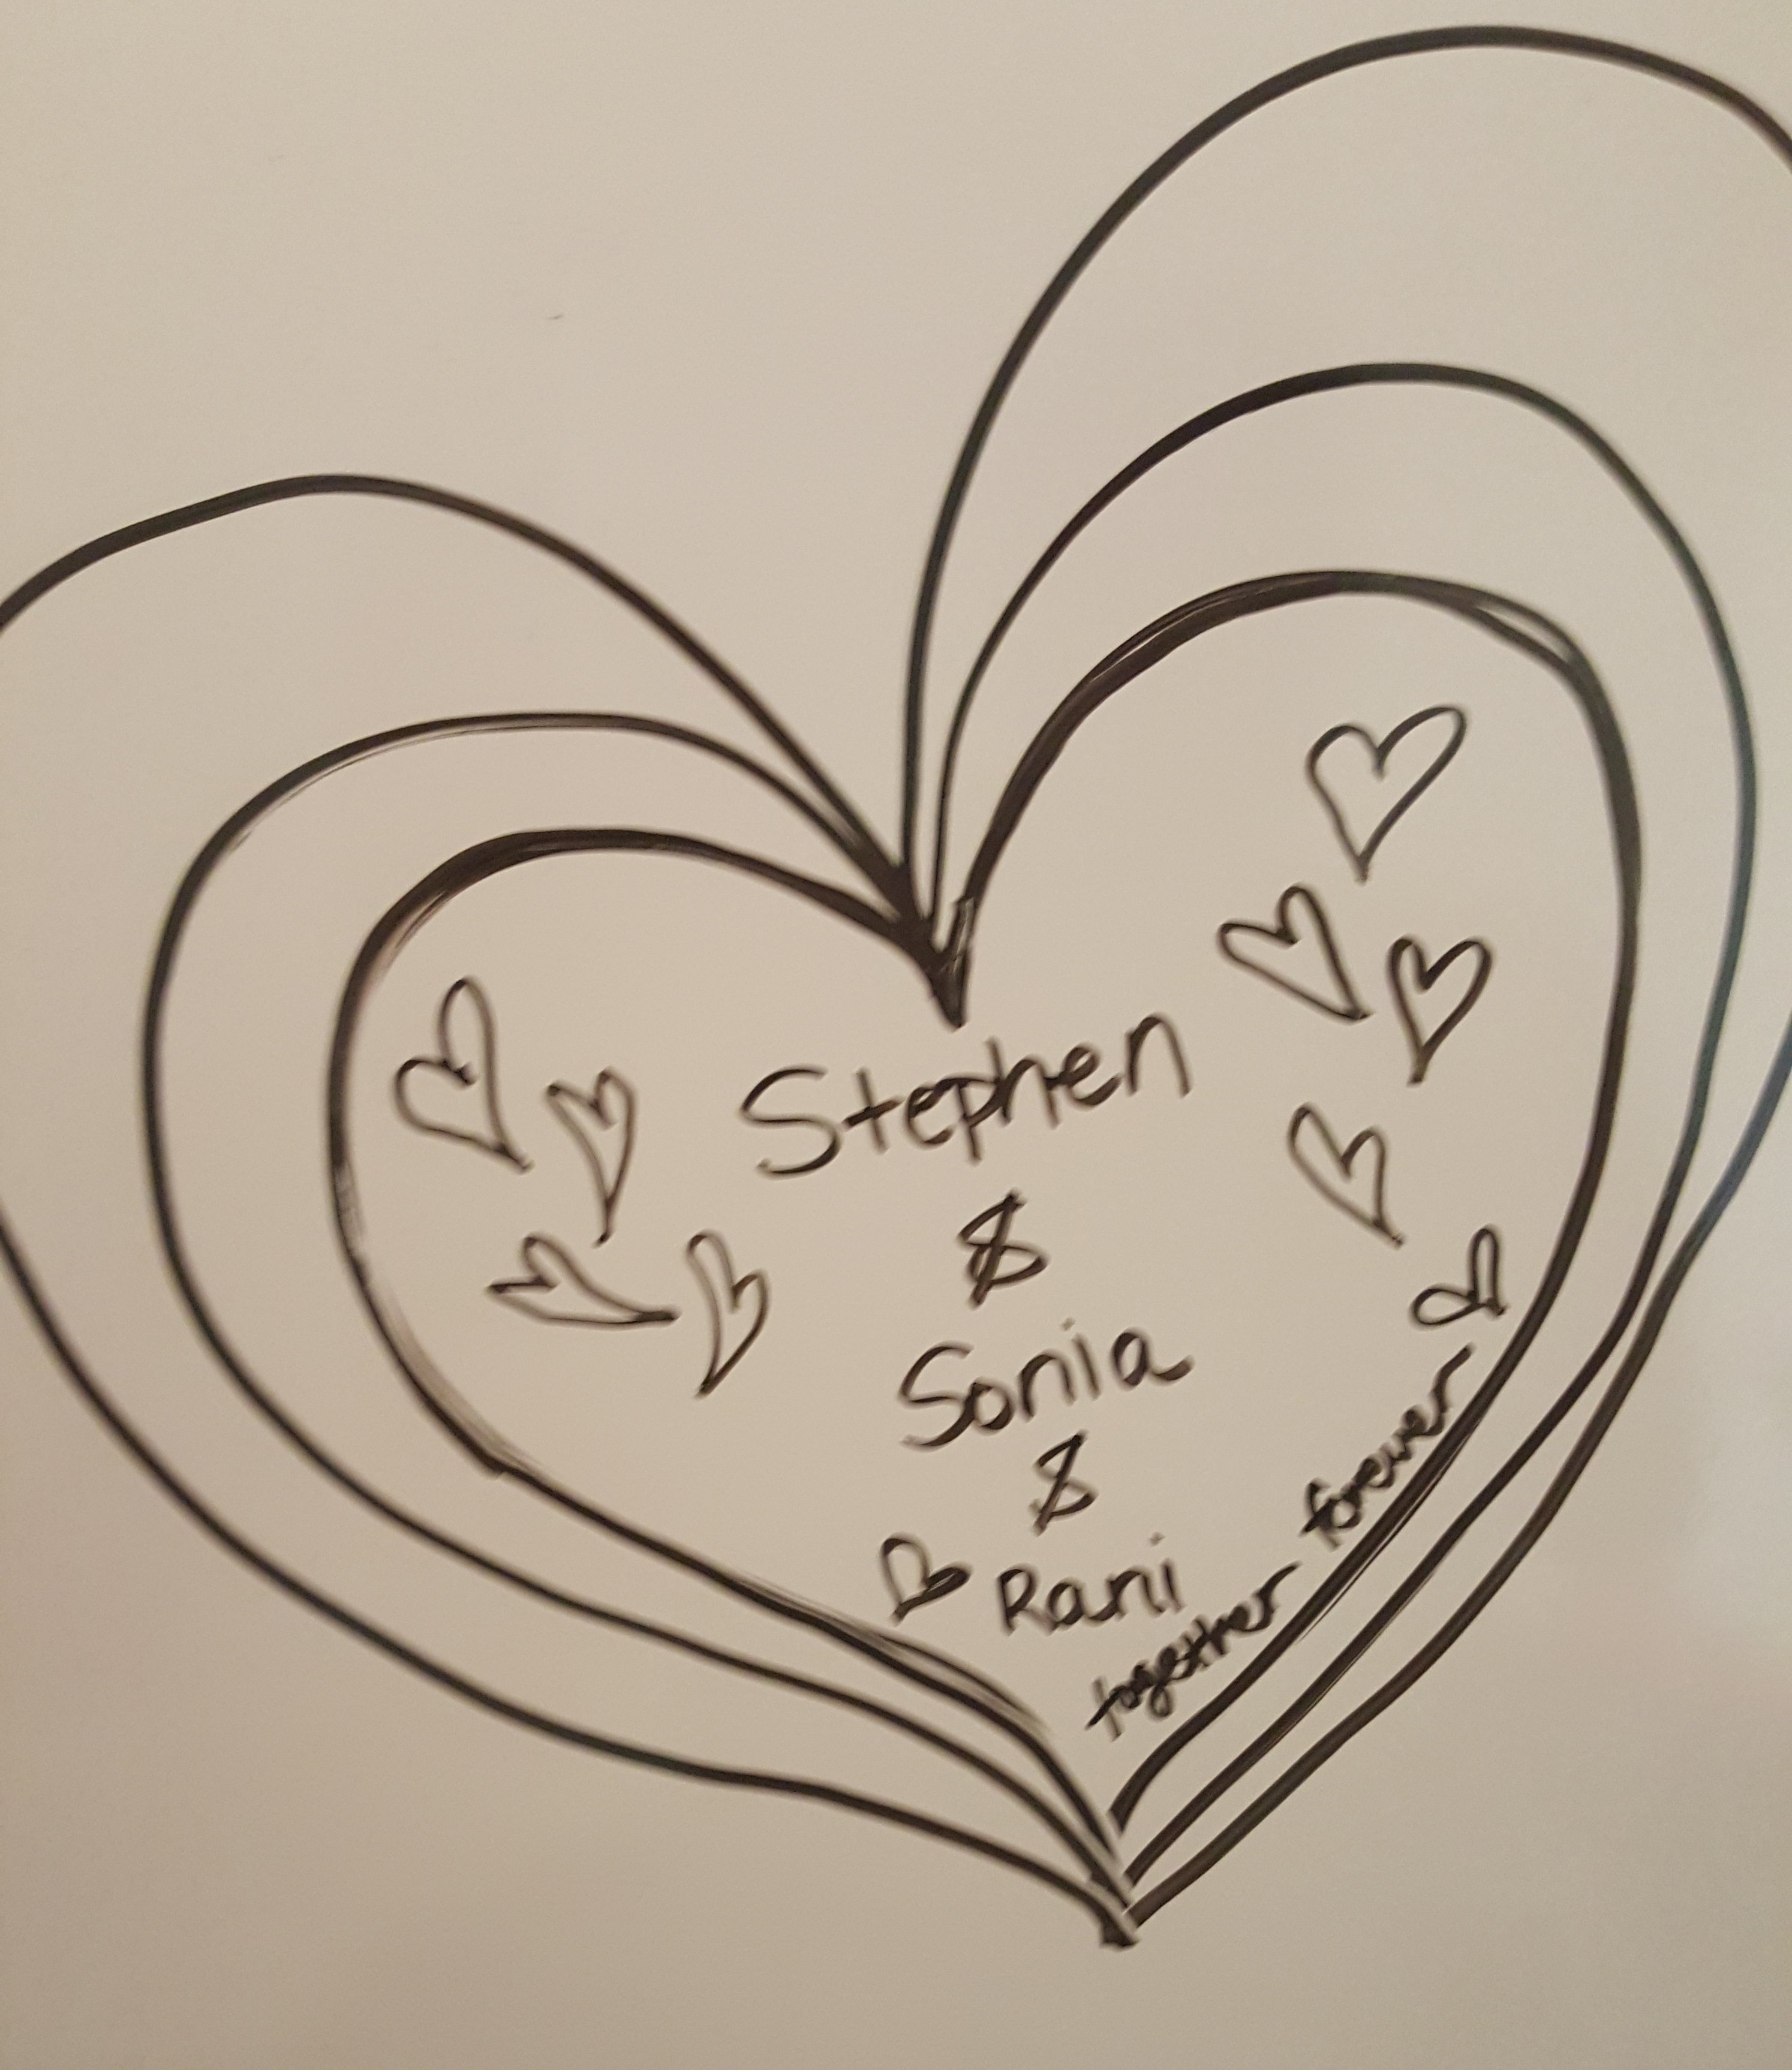 Stephen
&
Sonia
&
Rani
together forever